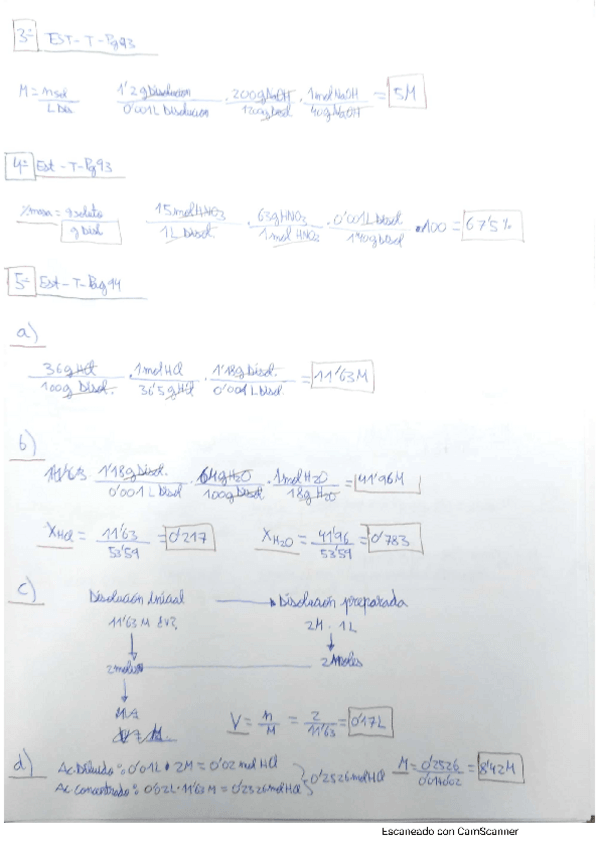 3º EST-T-Pg93
M = n sol / L Dis   1'2 g Disolucion / 0'001 L Disolucion · 200g NaOH / 1200g Disol · 1 mol NaOH / 40g NaOH = 5M
4º Est-T-Pg93
% masa = g soluto / g Disol   15 mol HNO3 / 1L Disol · 63g HNO3 / 1 mol HNO3 · 0'001 L Disol / 1'40g Disol · 100 = 67'5%
5º Est-T-Pag94
a)
36g HCl / 100g Disol. · 1 mol HCl / 36'5 g HCl · 1'18g Disol. / 0'001 L Disol = 11'63 M
b)
1'18g Disol. / 0'001 L Disol · 64g H2O / 100g Disol · 1 mol H2O / 18g H2O = 41'96 M
XHCl = 11'63 / 53'59 = 0'217   XH2O = 41'96 / 53'59 = 0'783
c)
Disolución Inicial → Disolución preparada
11'63 M ¿V?   2M · 1L
2 moles   2 Moles
V = n / M = 2 / 11'63 = 0'17L
d) Ac. Diluido: 0'01L · 2M = 0'02 mol HCl
Ac. Concentrado: 0'02L · 11'63 M = 0'2326 mol HCl
0'2526 mol HCl   M = 0'2526 / = 8'42M
Escaneado con CamScanner